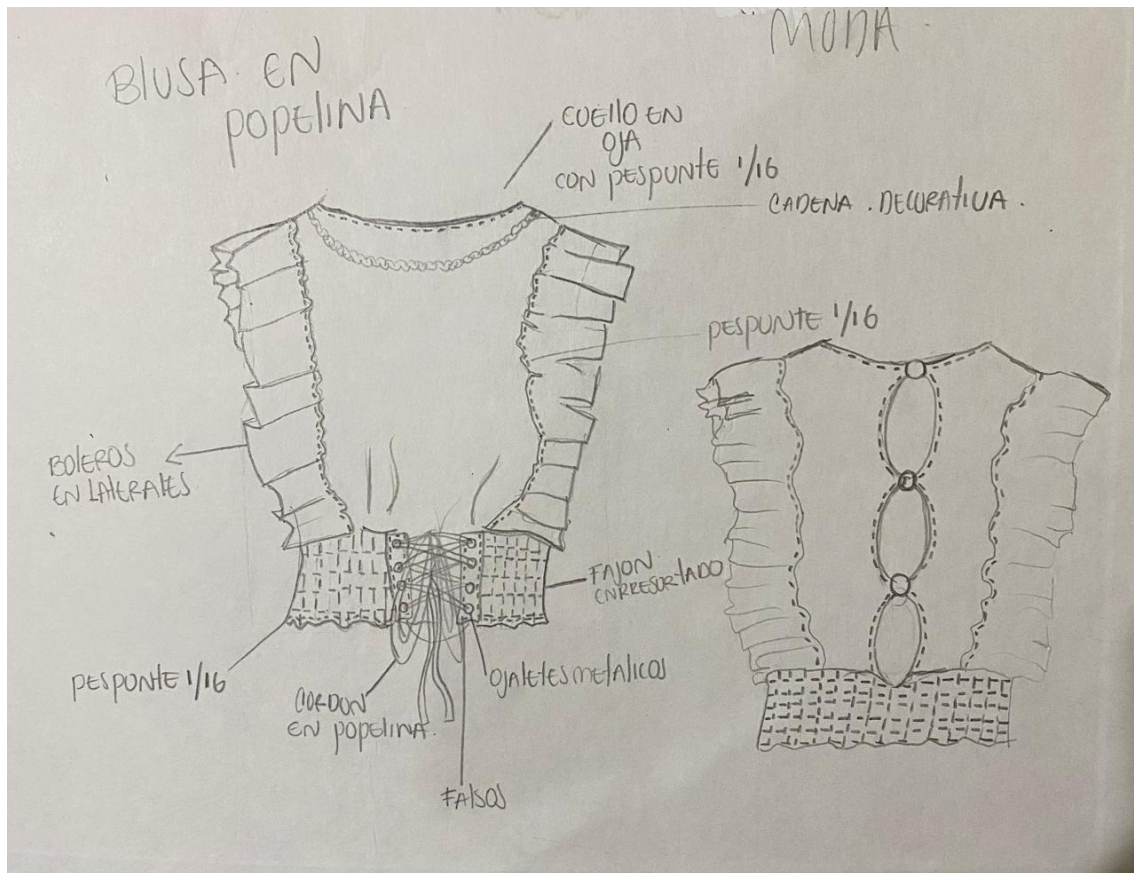 MODA
BlUSA. EN
POPELINA
CUELLO EN
OJA
CON PESPUNTE 1/16
CADENA. DECORATIVA.
PESPUNTE 1/16
BOLEROS
EN LATERALES
FAJON
ENRRESORTADO
PESPONTE 1/16
CORDON
EN POPELINA.
OJALETES METALICOS
FALSOS